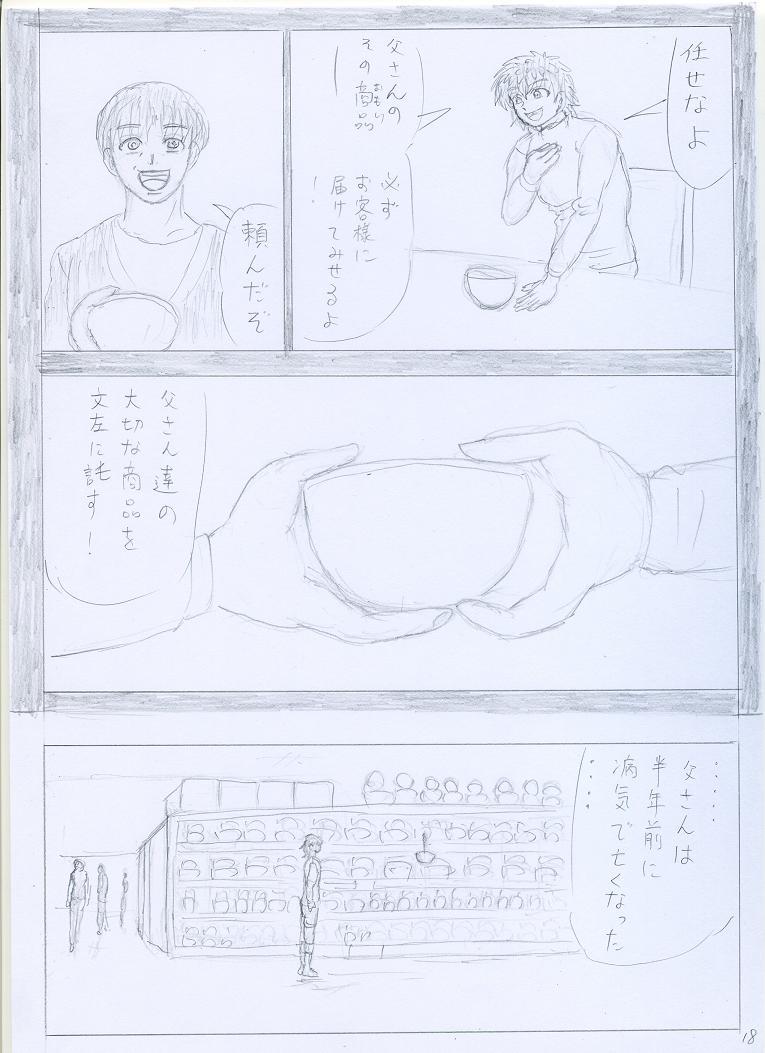 任せなよ
父さんの
その商品
おもい
必ず
お客様に
届けてみせるよ
！
頼んだぞ
父さん達の
大切な商品を
文左に託す！
……
父さんは
半年前に
病気で亡くなった
……
18